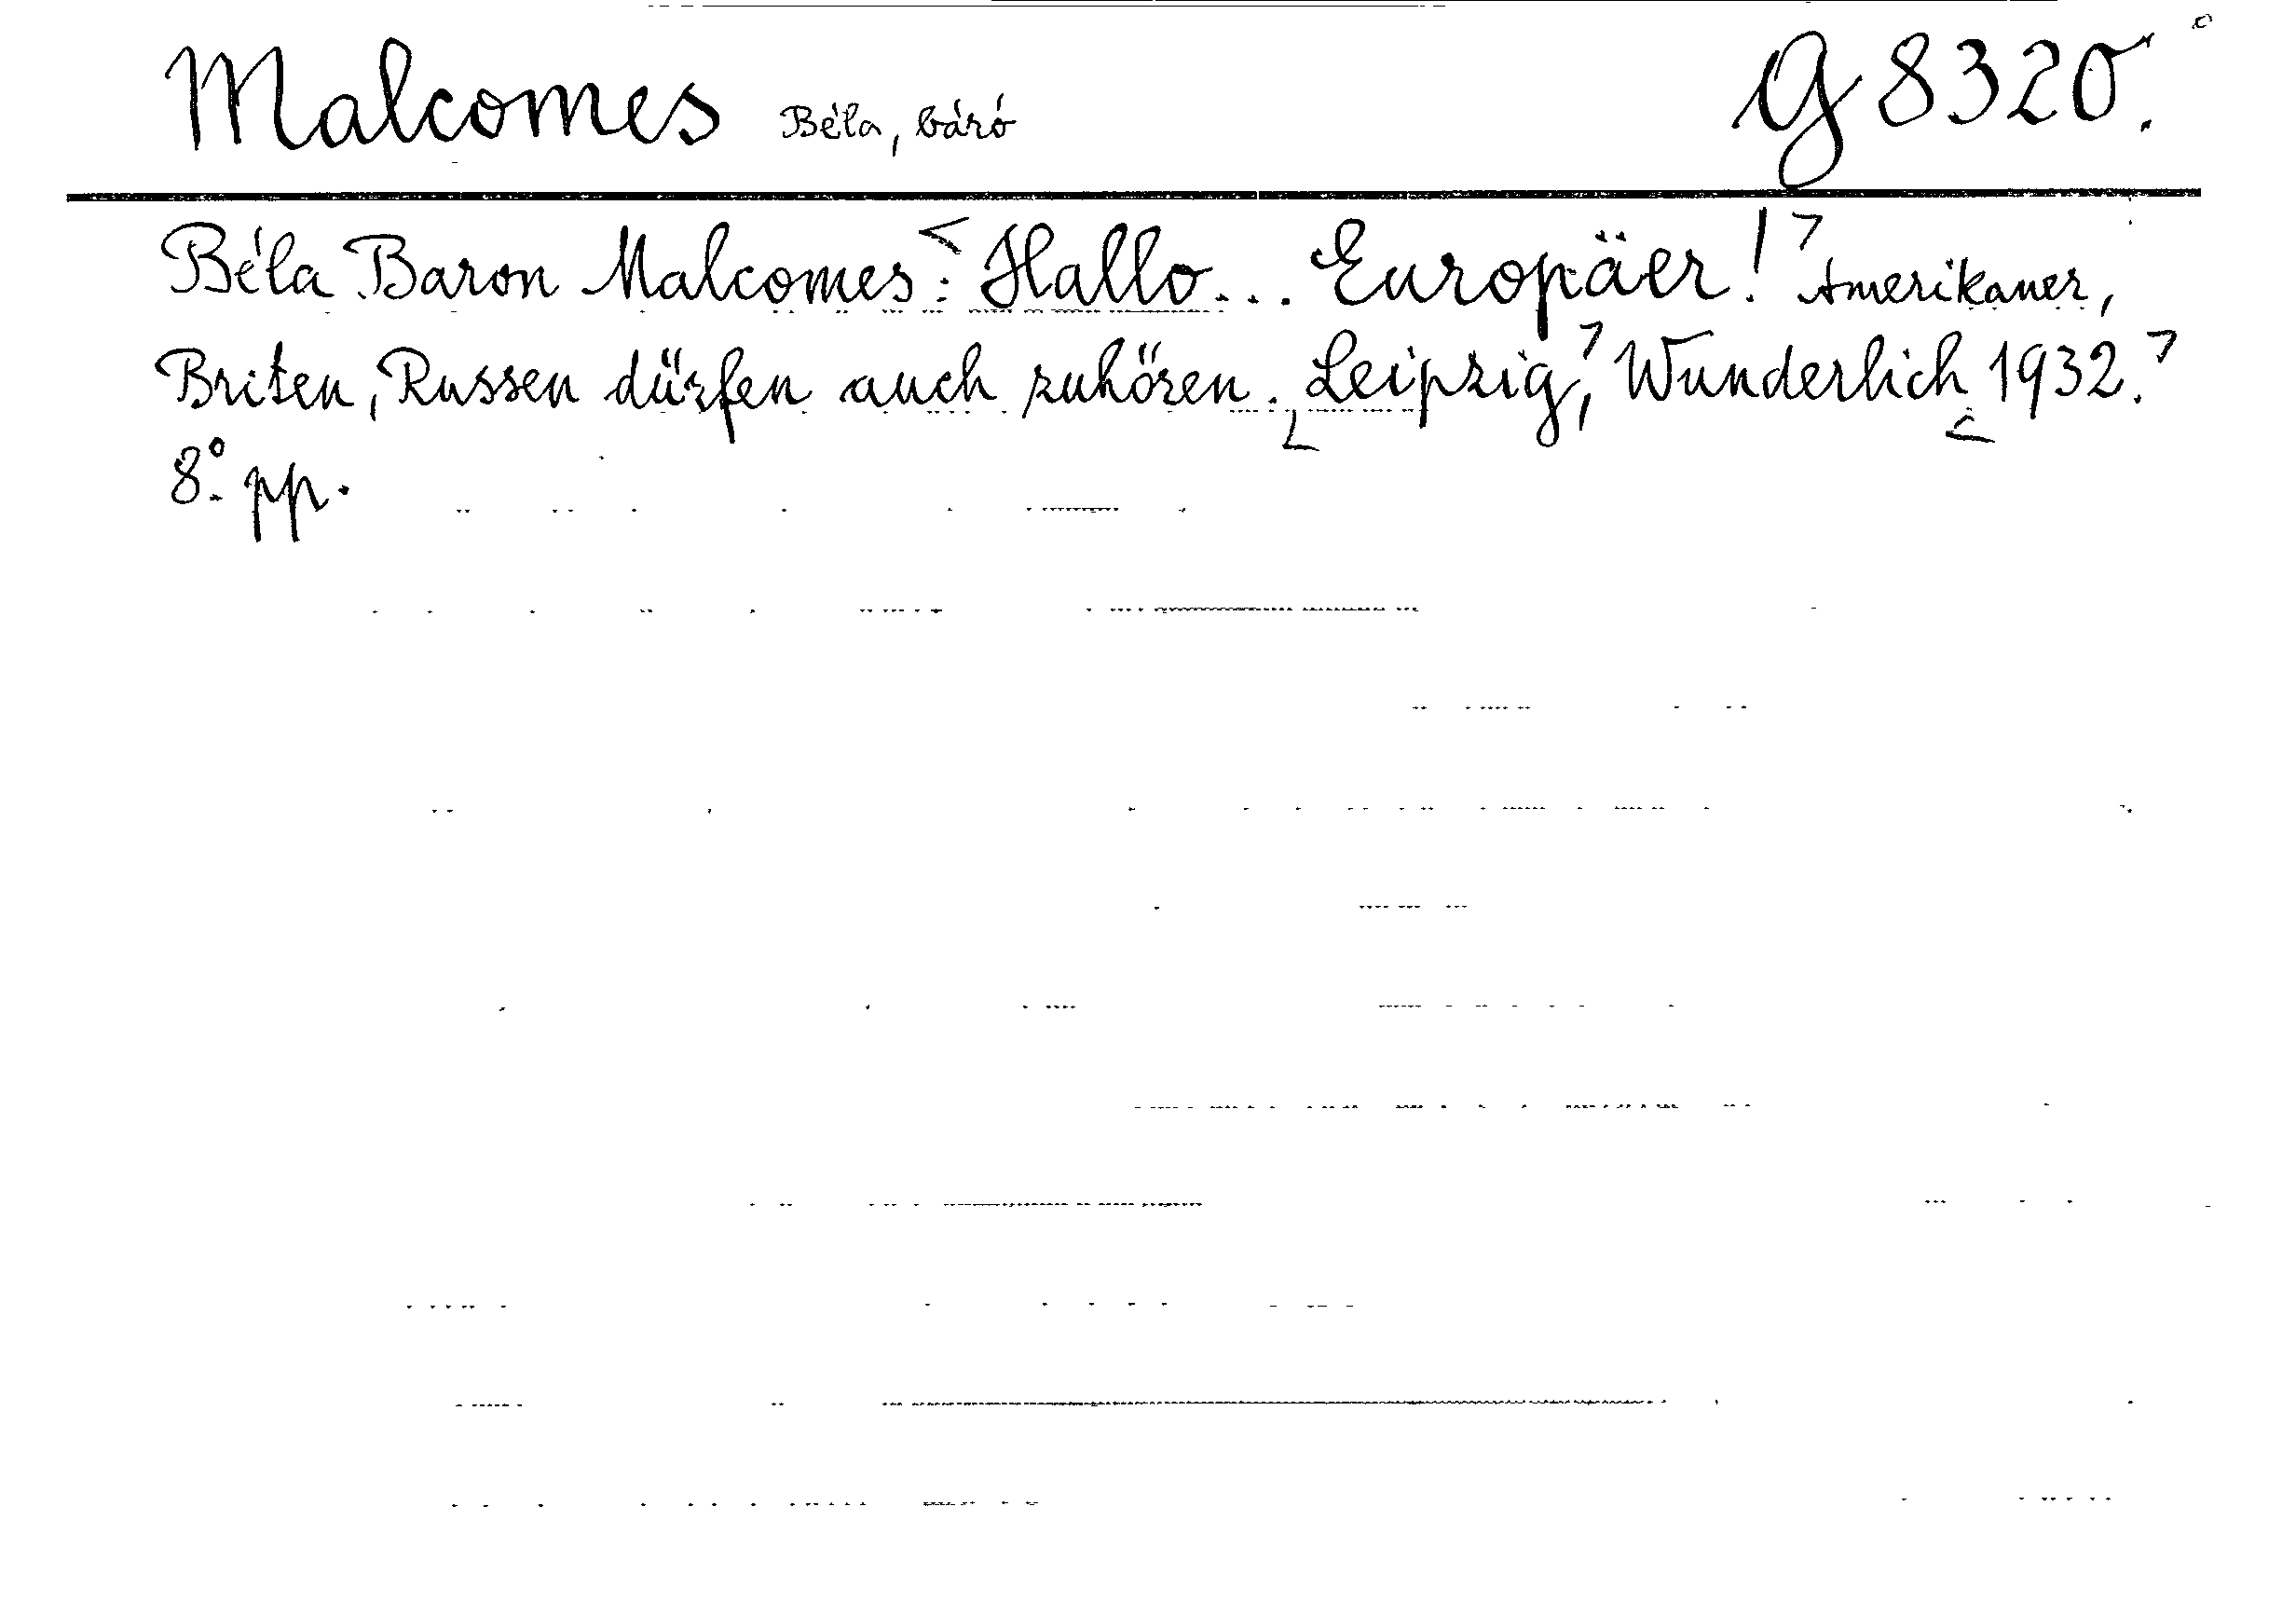 Malcomes Béla, báró G 8320.
Béla Baron Malcomes: Hallo... Europäer! Amerikaner,
Briten, Russen dürfen auch zuhören. Leipzig, Wunderlich 1932.
8° pp.